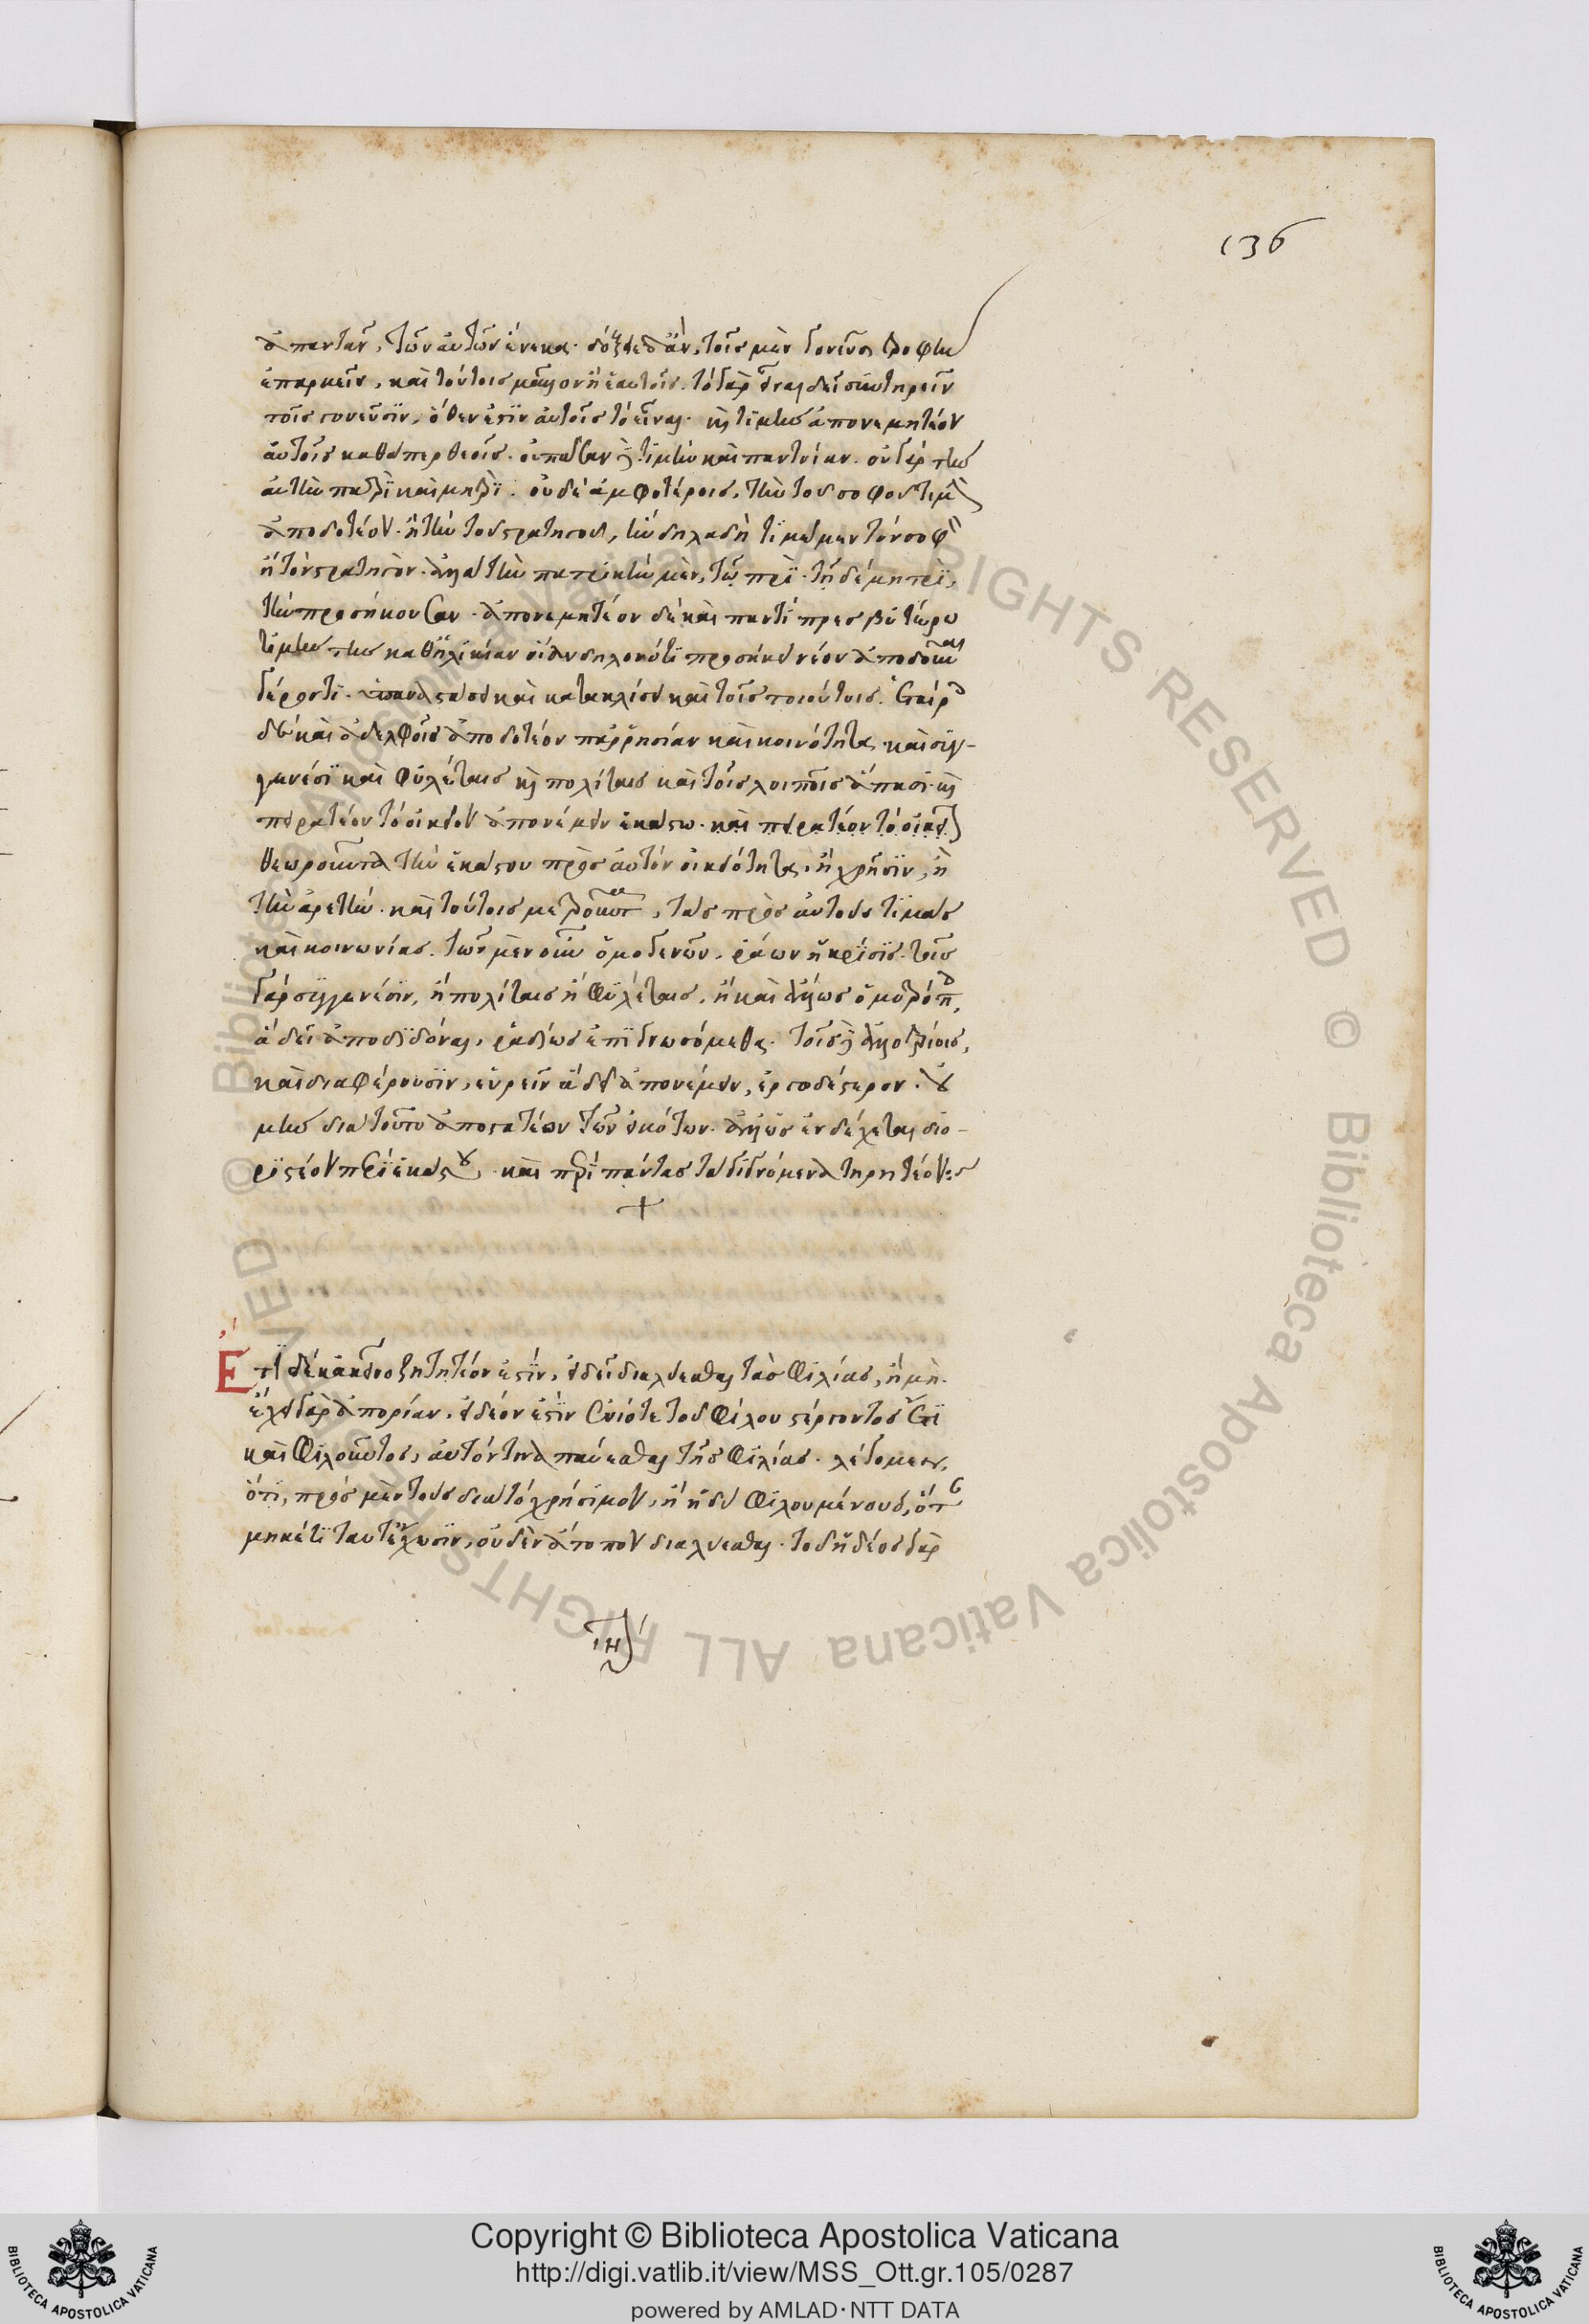 136
ἁπαντᾶν, τῶν αὐτῶν ἕνεκα. δόξειε δ' ἂν, τοῖς μὲν γονεῦσι τροφὴν
ἐπαρκεῖν, καὶ τούτοις μᾶλλον ἢ ἑαυτοῖς. τὸ γὰρ εἶναι δεῖ συντηρεῖν
τοῖς γονεῦσϊν, ὅθεν ἐστὶν αὐτοῖς τὸ εἶναι. καὶ τϊμὴν ἀπονεμητέον
αὐτοῖς καθάπερ θεοῖς. οὐ πᾶσαν δὲ τϊμὴν καὶ παντοίαν. οὐ γὰρ τὴν
αὐτὴν πατρὶ καὶ μητρϊ. οὐδὲ ἀμφοτέροις, τὴν τοῦ σοφοῦ τιμὴν
ἀποδοτέον. ἢ τὴν τοῦ στρατηγοῦ, ἣν δηλαδὴ τϊμῶμεν τὸν σοφὸν
ἢ τὸν στρατηγὸν. ἀλλὰ τὴν πατρϊκὴν μὲν, τῷ πρὶ. τῇ δὲ μητρὶ,
τὴν προσήκουσαν. ἀπονεμητέον δὲ καὶ παντὶ πρεσβϋτέρῳ
τϊμὴν τὴν καθ' ἡλϊκίαν οἵαν δηλονότϊ προσήκει νέον ἀποδοῦναι
γέροντϊ. ὑπαναστάσει καὶ κατακλίσει καὶ τοῖς τοιούτοις. ἑταίροις
δὲ καὶ ἀδελφοῖς ἀποδοτέον παρρησίαν καὶ κοινότητα, καὶ συγ-
γενέσϊ καὶ φϋλέταις καὶ πολίταις καὶ τοῖς λοιποῖς ἅπασϊ. καὶ
πειρατέον τὸ οἰκεῖον ἀπονέμειν ἑκάστῳ. καὶ πειρατέον τὸ οἰκεῖον
θεωροῦντα τὴν ἑκάστου πρὸς αὐτὸν οἰκειότητα, ἢ χρῆσϊν, ἢ
τὴν ἀρετὴν. καὶ τούτοις μετροῦντα, τὰς πρὸς αὐτοὺς τϊμὰς
καὶ κοινωνίας. τῶν μὲν οὖν ὁμογενῶν, ῥᾴων ἡ κρίσϊς. τοῖς
γὰρ συγγενέσϊν, ἢ πολίταις ἢ φϋλέταις, ἢ καὶ ἄλλως ὁμοτρόποις,
ἃ δεῖ ἀποδϊδόναι, ῥᾳδίως ἐπϊγνωσόμεθα. τοῖς δὲ ἀλλοτρίοις,
καὶ διαφέρουσϊν, εὑρεῖν ἃ δεῖ ἀπονέμειν, ἐργωδέστερον. οὐ
μὴν διὰ τοῦτο ἀποστατέον τῶν εἰκότων. ἀλλ' ὡς ἐνδέχεται διο-
ρϊστέον περὶ ἑκάστου, καὶ περὶ πάντας τὰ γϊγνόμενα τηρητέον:
+
Ἔτϊ δὲ κἀκεῖνο ζητητέον ἐστὶν, εἰ δεῖ διαλύεσθαι τὰς φϊλίας, ἢ μὴ.
ἔχει γὰρ ἀπορίαν, εἰ δέον ἐστὶν ἐνίοτε τοῦ φίλου στέργοντος ἔτϊ
καὶ φϊλοῦντος, αὐτόν τινα παύεσθαι τῆς φϊλίας. λέγομεν,
ὅτϊ, πρὸς μὲν τοὺς διὰ τὸ χρήσϊμον, ἢ ἡδὺ φϊλουμένους, ὅτε
μηκέτϊ ταῦτ' ἔχωσϊν, οὐδὲν ἄτοπον διαλύεσθαι. τοῦ ἡδέος γὰρ
ιη
Copyright © Biblioteca Apostolica Vaticana
http://digi.vatlib.it/view/MSS_Ott.gr.105/0287
powered by AMLAD·NTT DATA
BIBLIOTECA APOSTOLICA VATICANA
BIBLIOTECA APOSTOLICA VATICANA
© Biblioteca Apostolica Vaticana ALL RIGHTS RESERVED © Biblioteca Apostolica Vaticana ALL RIGHTS RESERVED